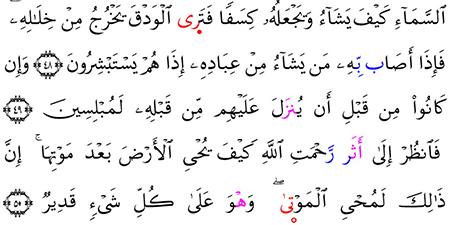 السَّمَآءِ كَيْفَ يَشَآءُ وَيَجْعَلُهُۥ كِسَفًا فَتَرَى ٱلْوَدْقَ يَخْرُجُ مِنْ خِلَٰلِهِۦ
فَإِذَا أَصَاب بِّهِۦ مَن يَشَآءُ مِنْ عِبَادِهِۦ إِذَا هُمْ يَسْتَبْشِرُونَ ﴿٤٨﴾ وَإِن
كَانُواْ مِن قَبْلِ أَن يُنزَلَ عَلَيْهِم مِّن قَبْلِهِۦ لَمُبْلِسِينَ ﴿٤٩﴾
فَٱنظُرْ إِلَىٰ أَثَر رَّحْمَتِ ٱللَّهِ كَيْفَ يُحْىِ ٱلْأَرْضَ بَعْدَ مَوْتِهَا ۚ إِنَّ
ذَٰلِكَ لَمُحْىِ ٱلْمَوْتَىٰ ۖ وَهْوَ عَلَىٰ كُلِّ شَىْءٍ قَدِيرٌ ﴿٥٠﴾